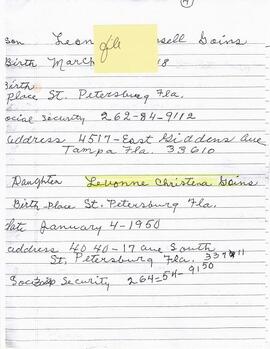 son Leon sell Goins
Birth March 8
Birth
Place St. Petersburg Fla.
ocial Security 262-84-9112
address 4517-East Giddens Ave
Tampa Fla. 33610
Daughter Levonne Christena Goins
Birth Place St. Petersburg Fla.
date January 4-1950
address 4040-17 ave South
St. Petersburg Fla. 33711
Social Security 264-54-9150